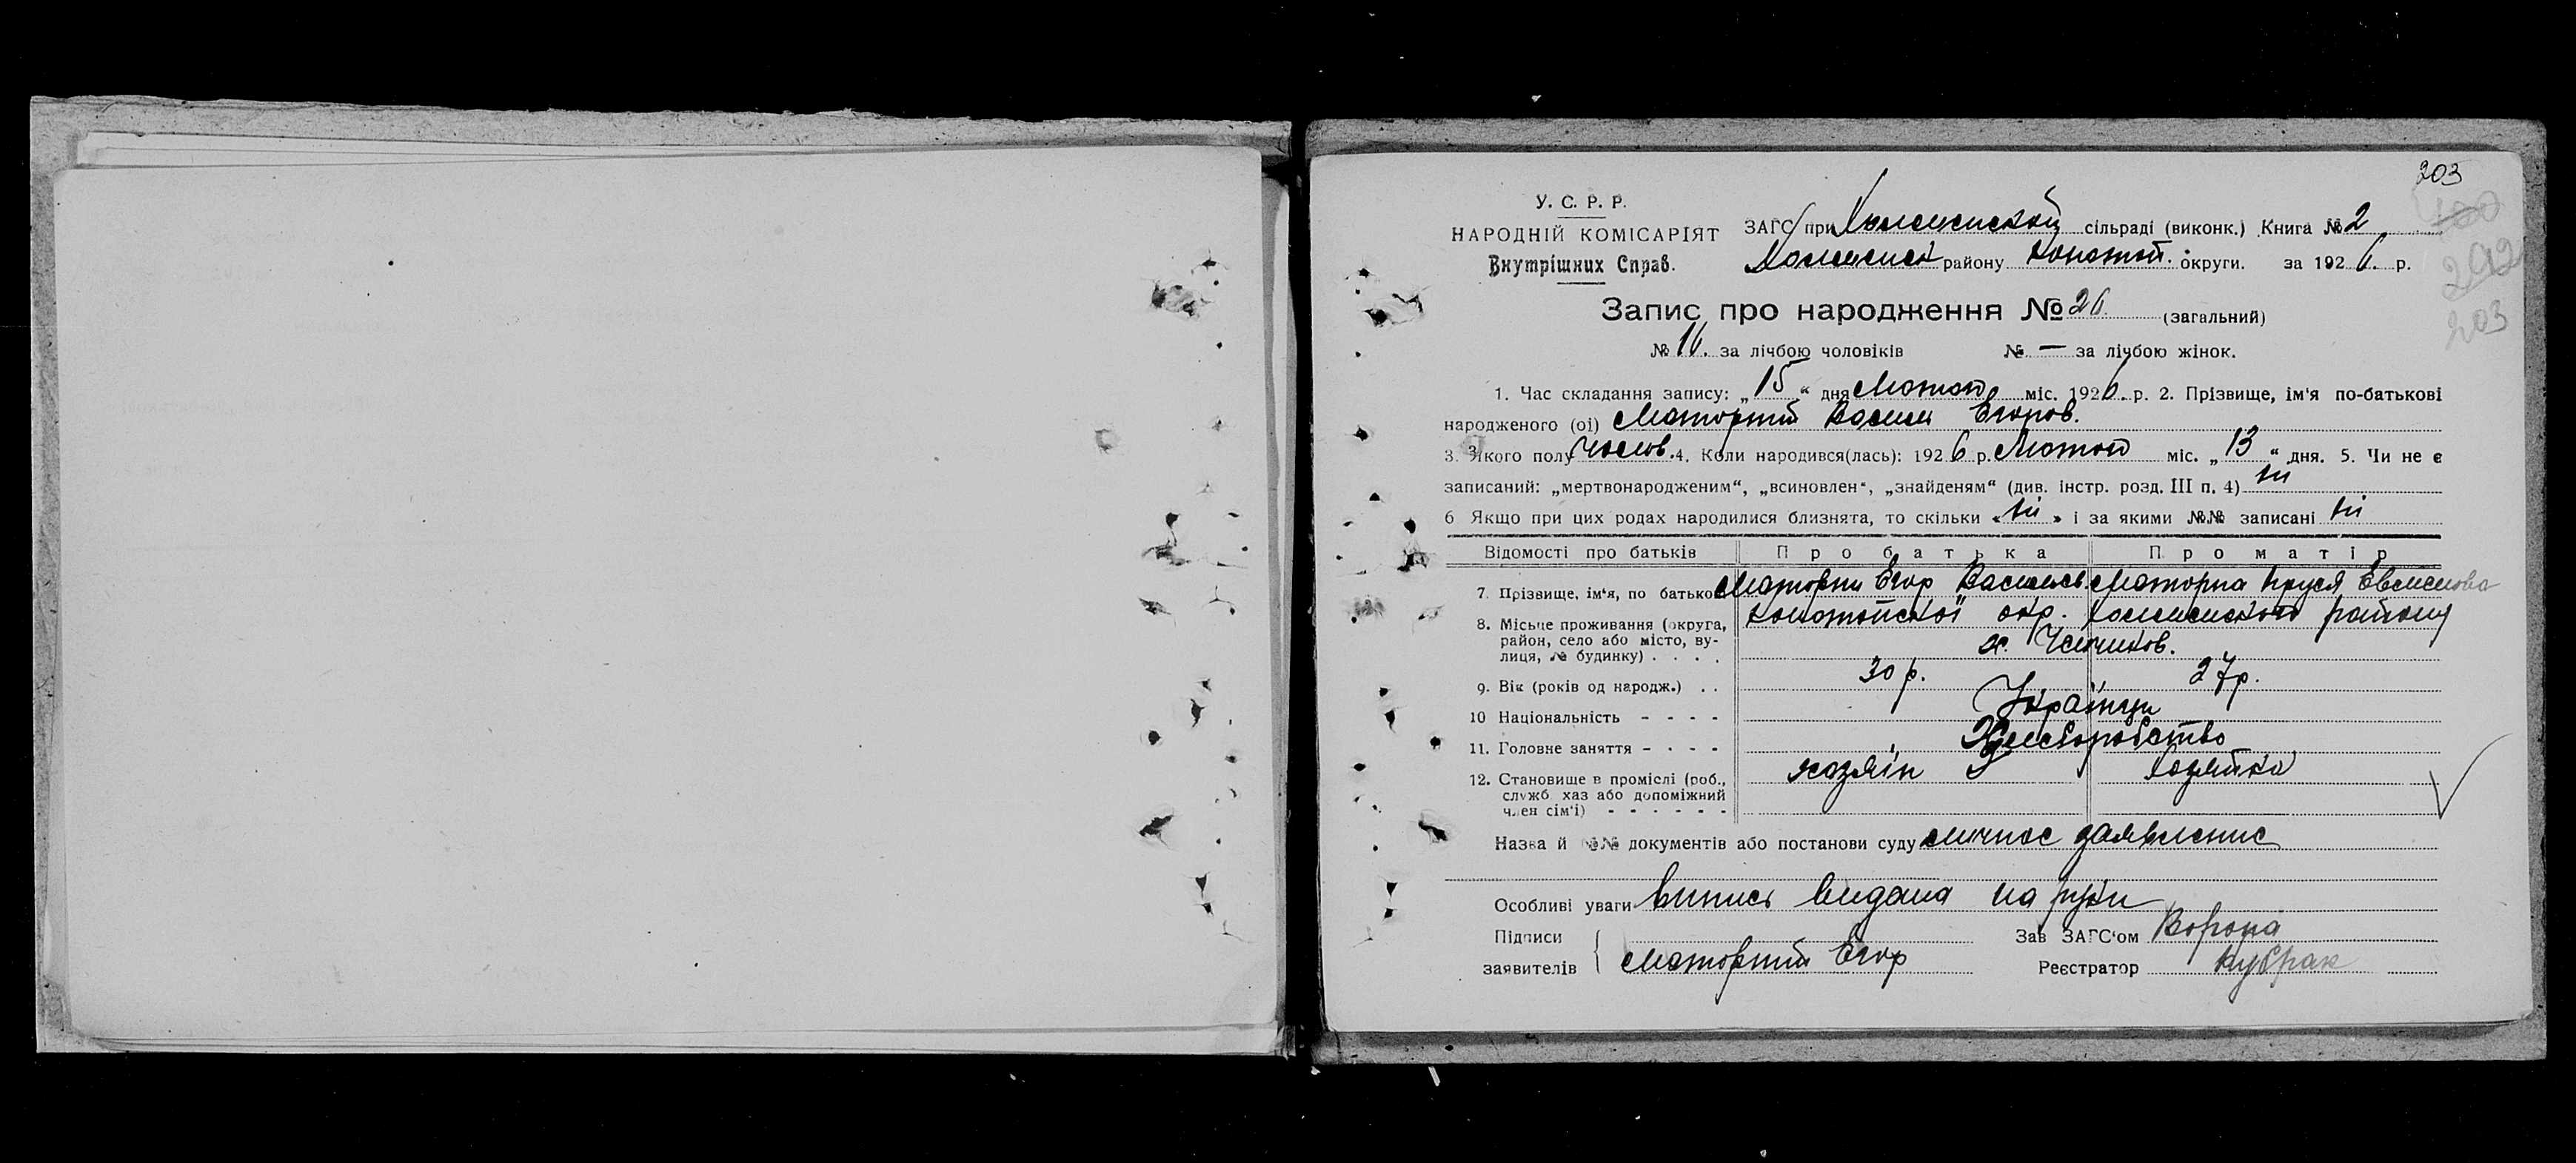 203
У. С. Р. Р.
НАРОДНІЙ КОМІСАРІЯТ
Внутрішних Справ.
ЗАГС при сільраді (виконк.) Книга № 2
району Конотоп. округи. за 1926. р.
292
203
Запис про народження № 26 (загальний)
№ 16. за лічбою чоловіків № — за лічбою жінок.
1. Час складання запису: „15“ дня Лютого міс. 1926. р. 2. Прізвище, ім'я по-батькові
народженого (ої) Маторний Василь Егоров.
3. Якого полу чолов. 4. Коли народився(лась): 1926 р. Лютого міс. „13“ дня. 5. Чи не є
записаний: „мертвонародженим“, „всиновлен“, „знайденям“ (див. інстр. розд. III п. 4) ні
6 Якщо при цих родах народилися близнята, то скільки «ні» і за якими №№ записані ні
Відомості про батьків Про батька Про матір
7. Прізвище, ім'я, по батькові Маторни Егор Васильев. Маторна
8. Місьце проживання (округа, район, село або місто, вулиця, № будинку) . . . . Конотопської окр. району
х.
9. Вік (років од народж.) . . 30 р. 27 р.
10 Національність - - - - Українци
11. Головне заняття - - - - Хлеборобство
12. Становище в промислі (роб., служб. хаз або допоміжний член сім'ї) - - - - - - хозяїн хозяйка
Назва й №№ документів або постанови суду личное заявление
Особливі уваги випись видана на руки
Підписи
заявителів Маторний Егор
Зав ЗАГС'ом Ворона
Реєстратор Кубрак